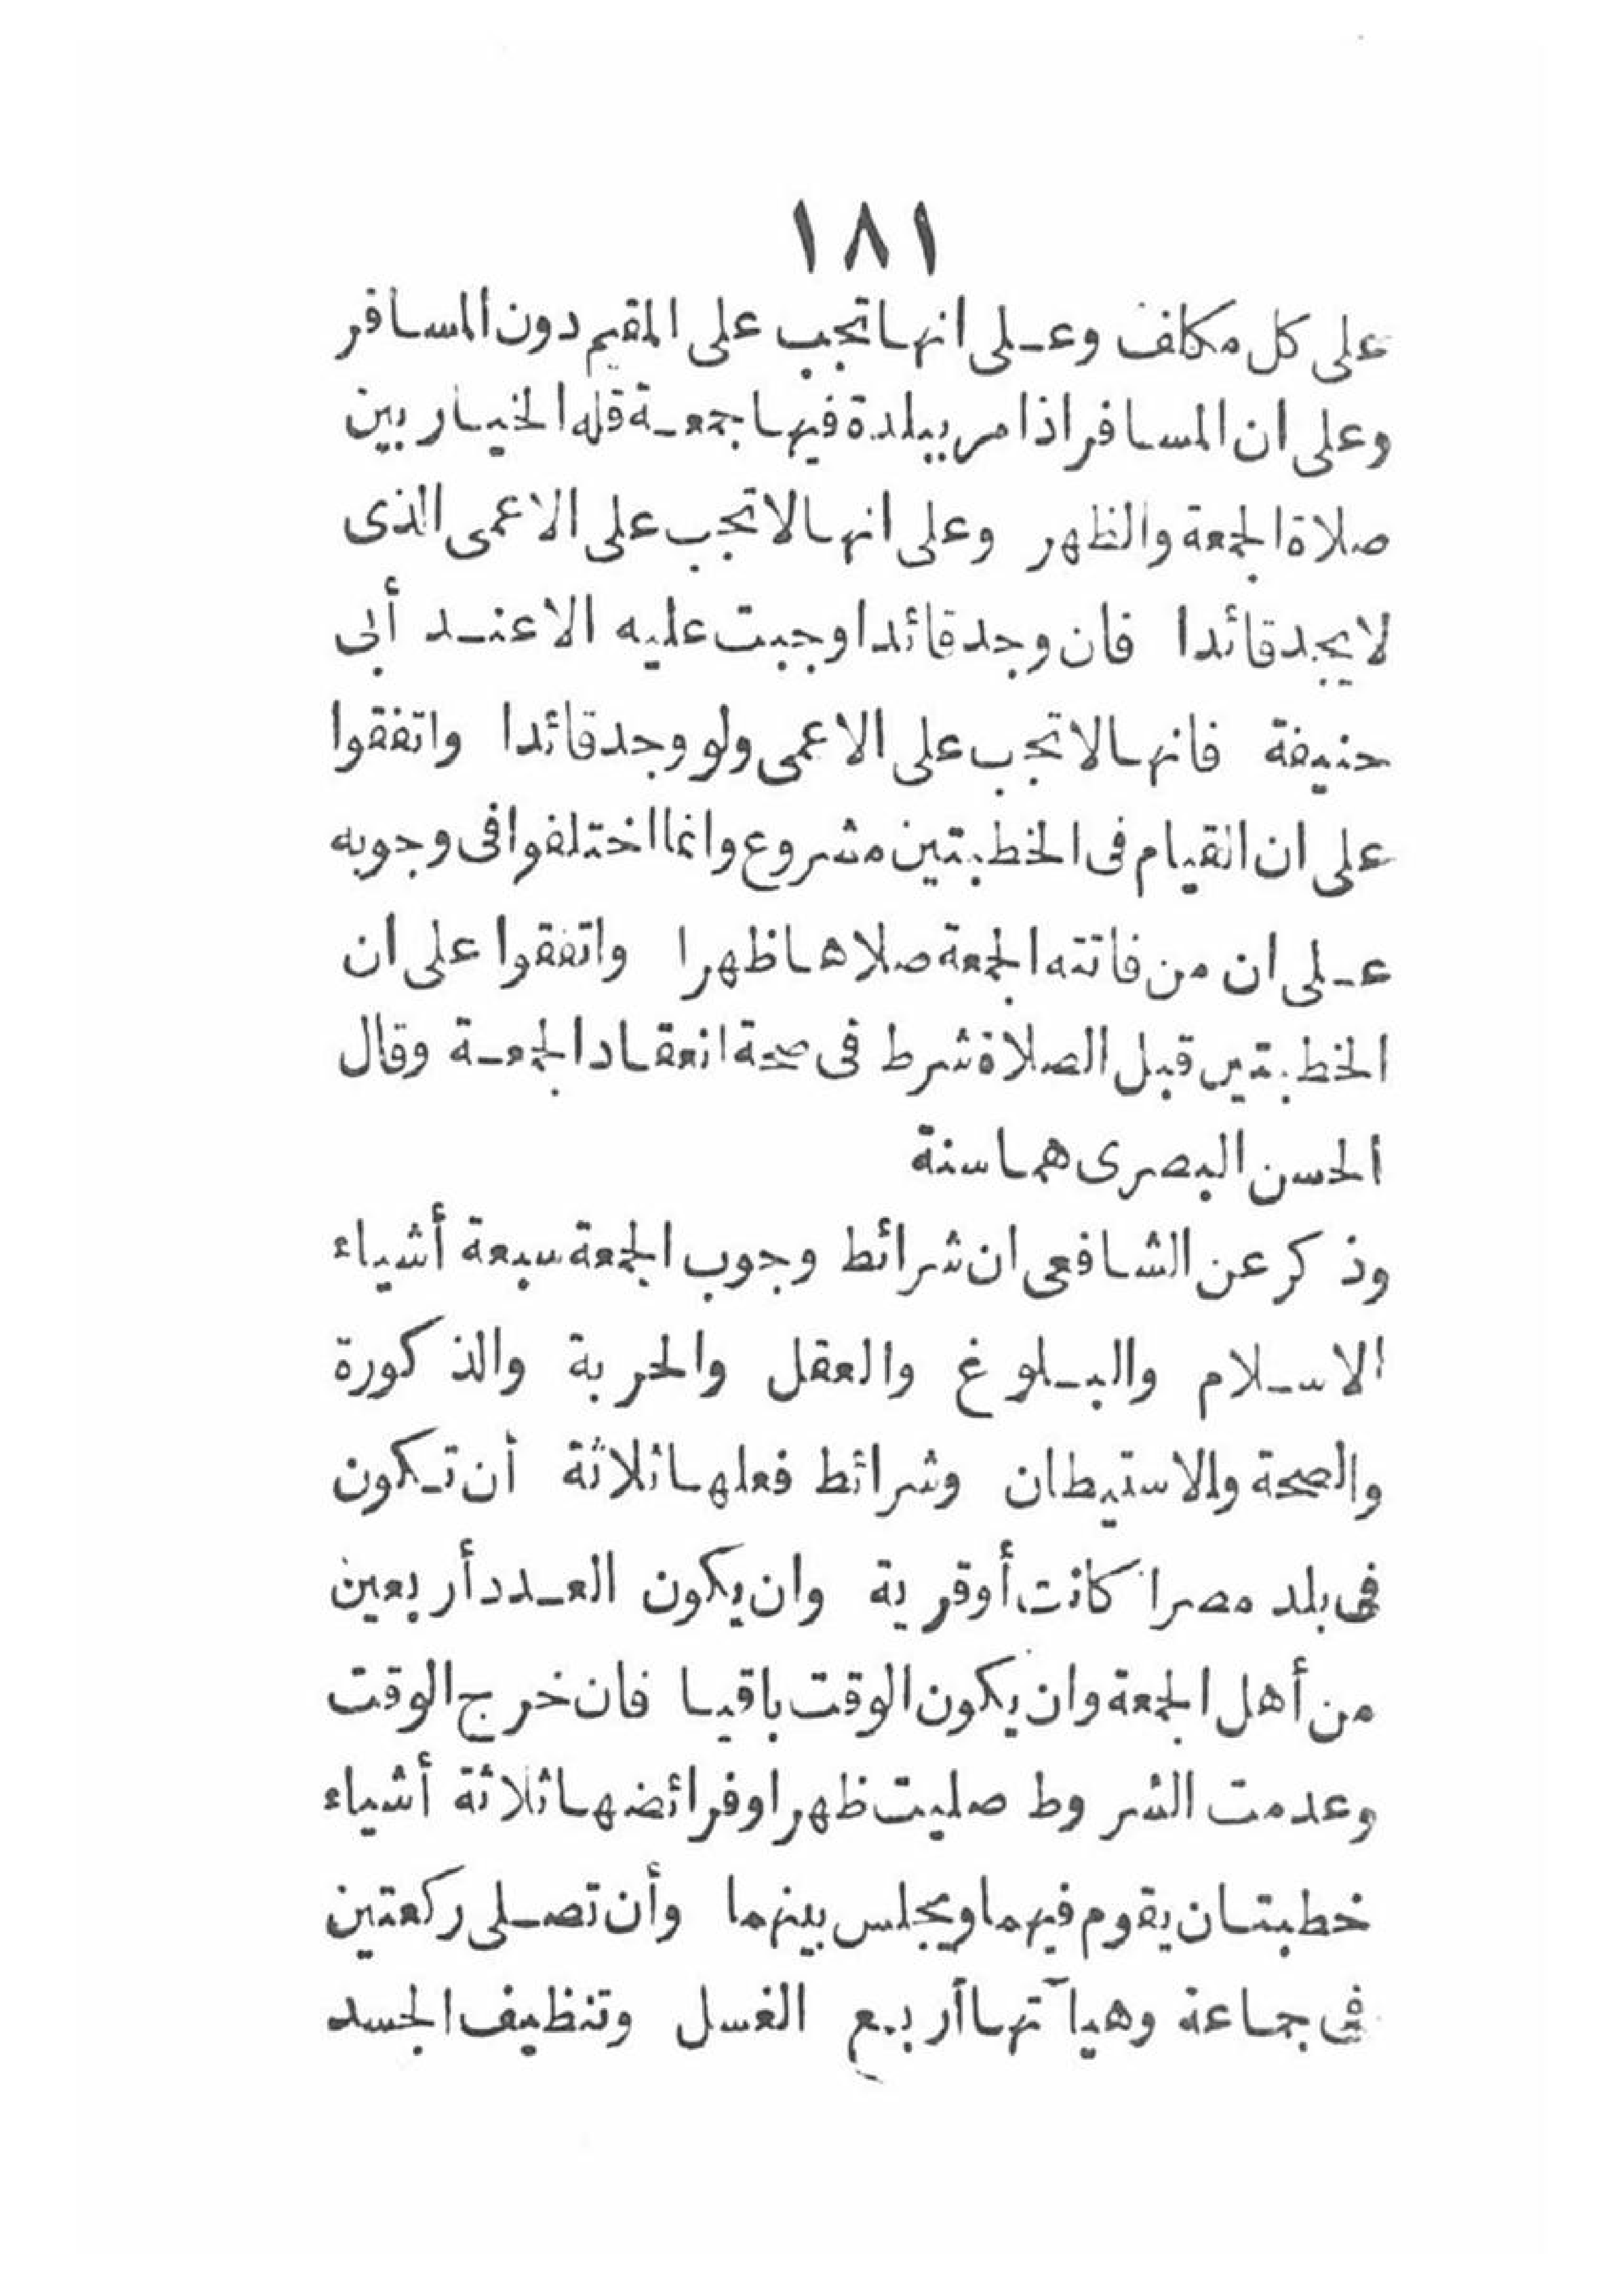 ١٨١
على كل مكلف وعلى انها تجب على المقيم دون المسافر
وعلى ان المسافر اذا مر ببلدة فيها جمعة فله الخيار بين
صلاة الجمعة والظهر وعلى انها لا تجب على الاعمى الذى
لا يجد قائدا فان وجد قائدا وجبت عليه الا عند أبى
حنيفة فانها لا تجب على الاعمى ولو وجد قائدا واتفقوا
على ان القيام فى الخطبتين مشروع وانما اختلفوا فى وجوبه
على ان من فاتته الجمعة صلاها ظهرا واتفقوا على ان
الخطبتين قبل الصلاة شرط فى صحة انعقاد الجمعة وقال
الحسن البصرى هما سنة
وذكر عن الشافعى ان شرائط وجوب الجمعة سبعة أشياء
الاسلام والبلوغ والعقل والحرية والذكورة
والصحة والاستيطان وشرائط فعلها ثلاثة أن تكون
فى بلد مصرا كانت أو قرية وان يكون العدد أربعين
من أهل الجمعة وان يكون الوقت باقيا فان خرج الوقت
وعدمت الشروط صليت ظهرا وفرائضها ثلاثة أشياء
خطبتان يقوم فيهما ويجلس بينهما وأن تصلى ركعتين
فى جماعة وهيآتها أربع الغسل وتنظيف الجسد